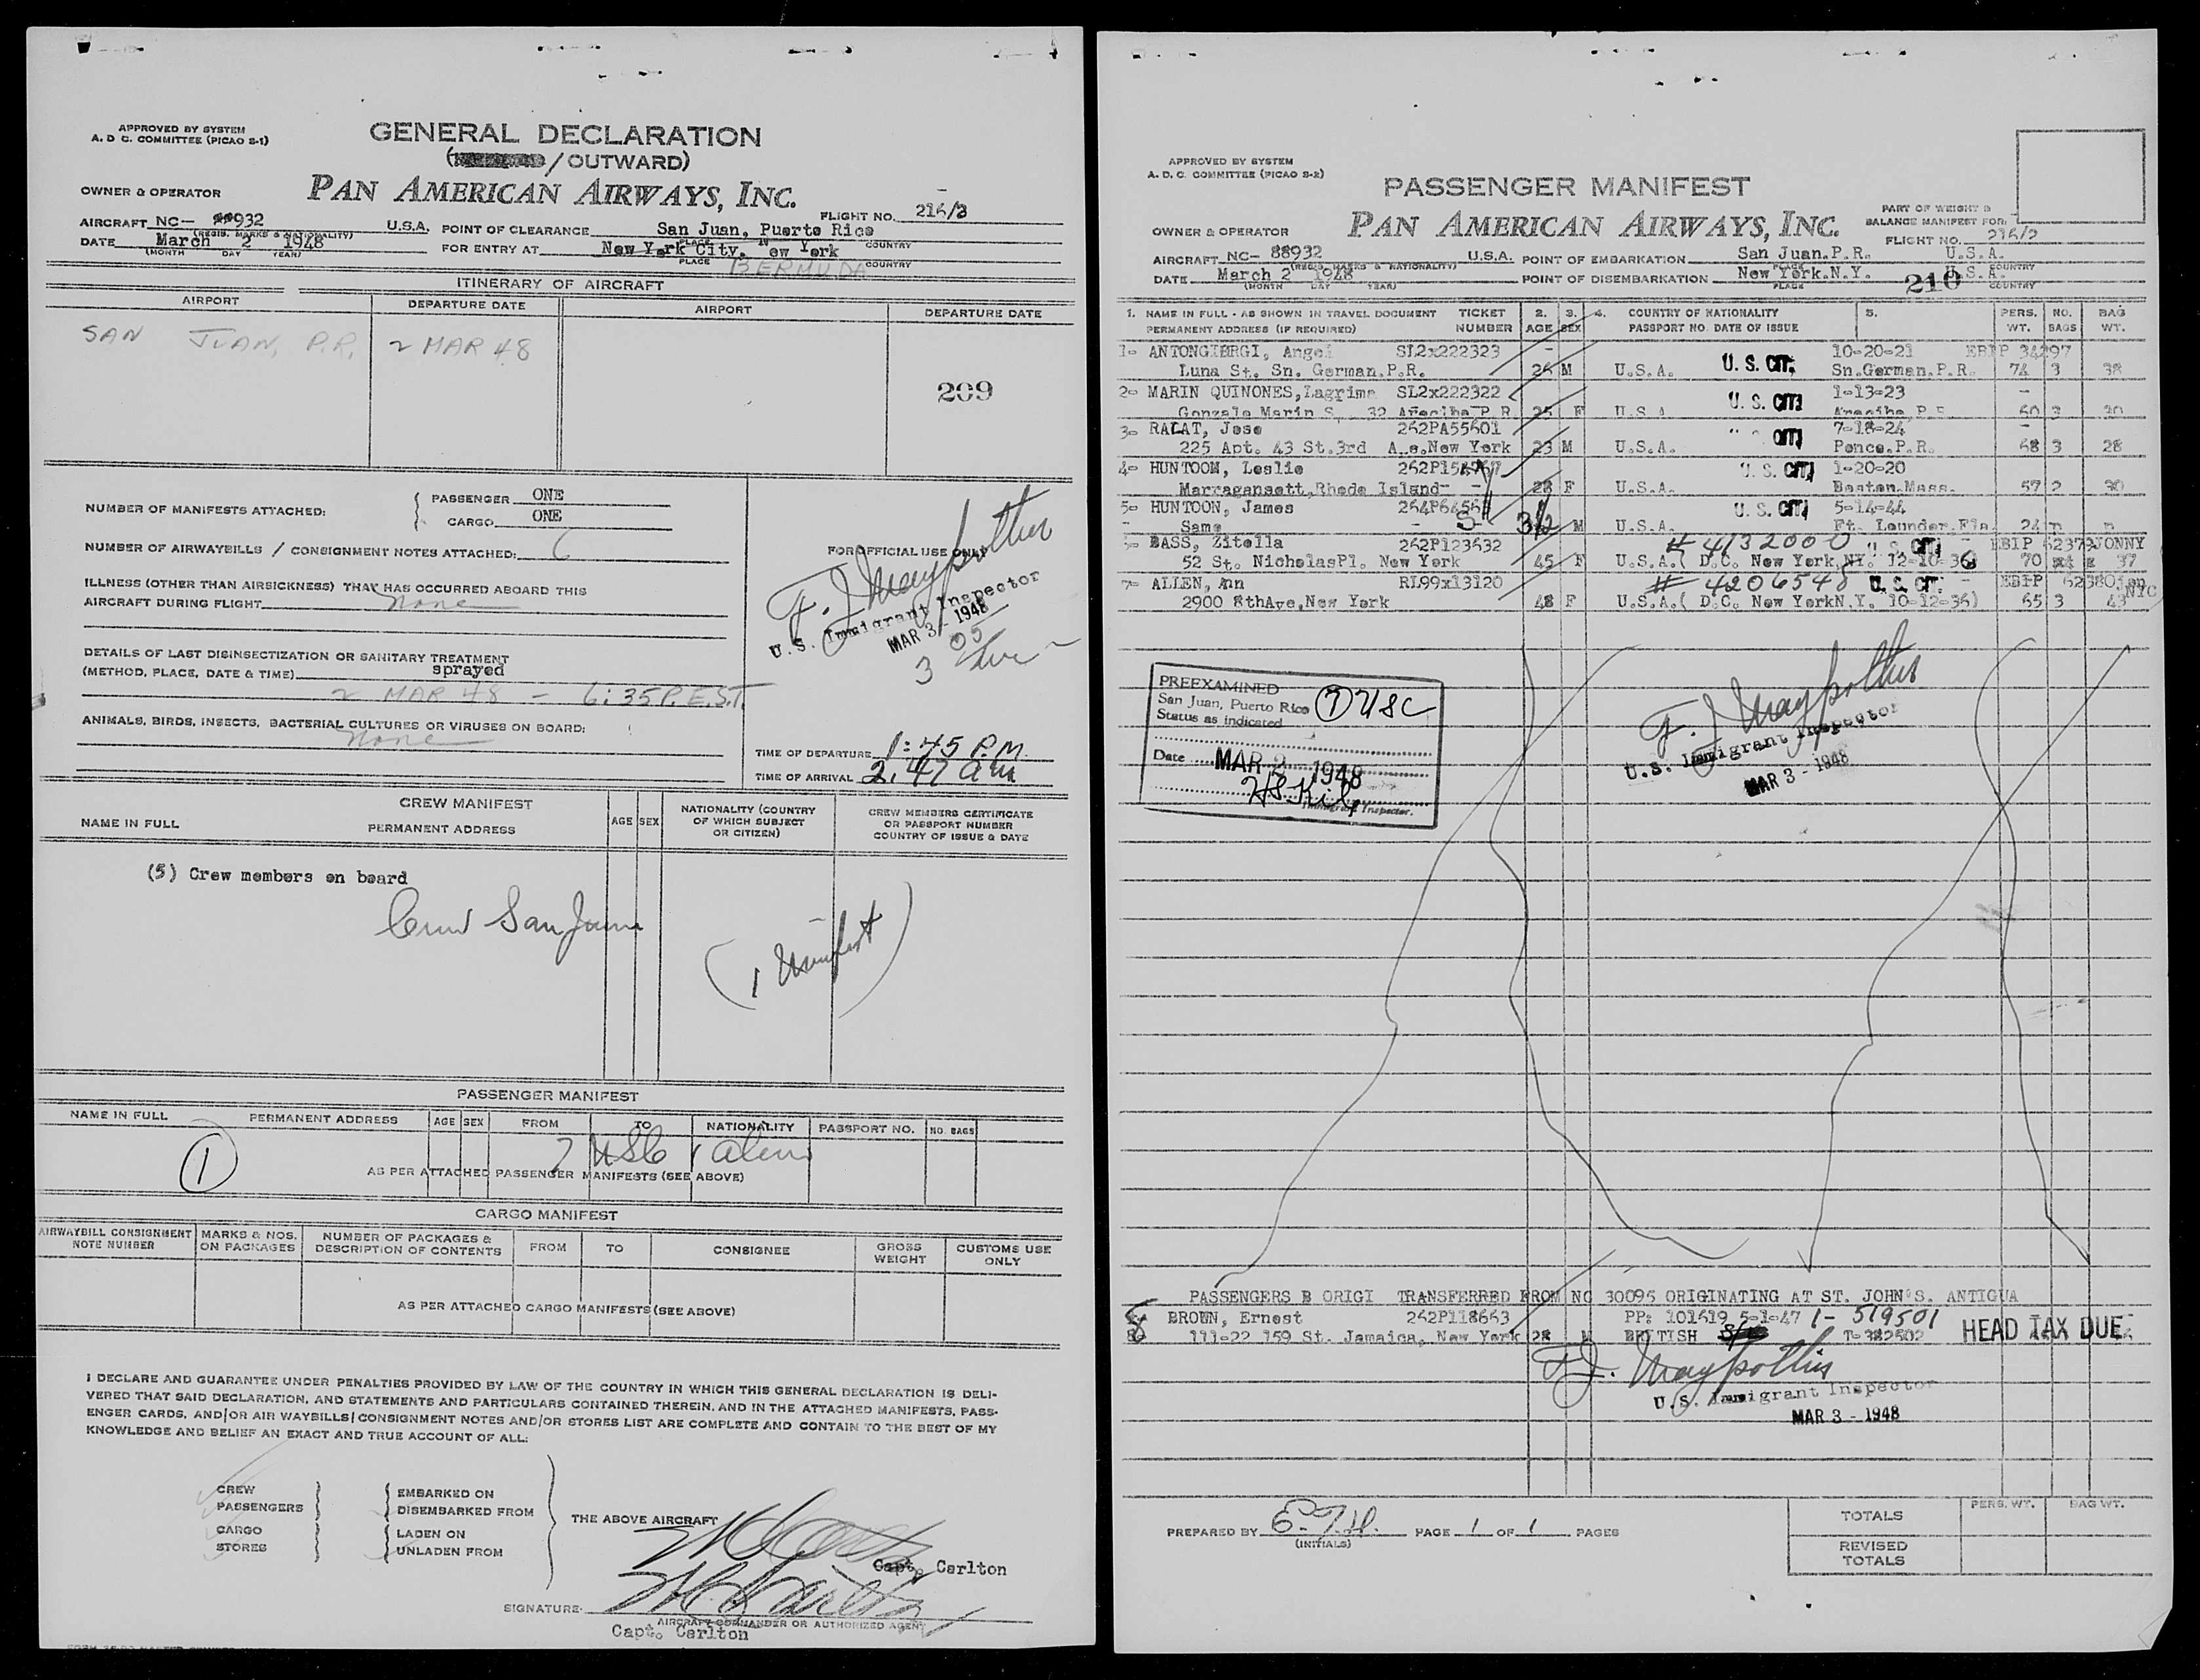 APPROVED BY SYSTEM
A. D C. COMMITTEE (PICAO S-1)
GENERAL DECLARATION
( / OUTWARD)
OWNER & OPERATOR
PAN AMERICAN AIRWAYS, INC.
AIRCRAFT NC- 88932 U.S.A.
(REGIS. MARKS & NATIONALITY)
FLIGHT NO. 216/2
POINT OF CLEARANCE San Juan, Puerto Rico
PLACE COUNTRY
DATE March 2 1948
(MONTH DAY YEAR)
FOR ENTRY AT New York City, New York
PLACE BERMUDA COUNTRY
ITINERARY OF AIRCRAFT
AIRPORT DEPARTURE DATE AIRPORT DEPARTURE DATE
SAN JUAN, P.R. 2 MAR 48
209
NUMBER OF MANIFESTS ATTACHED:
PASSENGER ONE
CARGO ONE
NUMBER OF AIRWAYBILLS / CONSIGNMENT NOTES ATTACHED:
ILLNESS (OTHER THAN AIRSICKNESS) THAT HAS OCCURRED ABOARD THIS
AIRCRAFT DURING FLIGHT None
DETAILS OF LAST DISINSECTIZATION OR SANITARY TREATMENT
(METHOD, PLACE, DATE & TIME) sprayed
2 MAR 48 - 6:35 P. E.S.T.
ANIMALS, BIRDS, INSECTS, BACTERIAL CULTURES OR VIRUSES ON BOARD:
None
FOR OFFICIAL USE ONLY
U.S. Immigrant Inspector
MAR 3 - 1948
TIME OF DEPARTURE 1:45 P.M.
TIME OF ARRIVAL 2.47 am
CREW MANIFEST
NAME IN FULL PERMANENT ADDRESS AGE SEX
NATIONALITY (COUNTRY
OF WHICH SUBJECT
OR CITIZEN)
CREW MEMBERS CERTIFICATE
OR PASSPORT NUMBER
COUNTRY OF ISSUE & DATE
(5) Crew members on board
(1 Manifest)
PASSENGER MANIFEST
NAME IN FULL PERMANENT ADDRESS AGE SEX FROM TO NATIONALITY PASSPORT NO. NO. BAGS
1
7 USC 1 alien
AS PER ATTACHED PASSENGER MANIFESTS (SEE ABOVE)
CARGO MANIFEST
AIRWAYBILL CONSIGNMENT
NOTE NUMBER
MARKS & NOS.
ON PACKAGES
NUMBER OF PACKAGES &
DESCRIPTION OF CONTENTS
FROM TO CONSIGNEE
GROSS
WEIGHT
CUSTOMS USE
ONLY
AS PER ATTACHED CARGO MANIFESTS (SEE ABOVE)
I DECLARE AND GUARANTEE UNDER PENALTIES PROVIDED BY LAW OF THE COUNTRY IN WHICH THIS GENERAL DECLARATION IS DELI-
VERED THAT SAID DECLARATION, AND STATEMENTS AND PARTICULARS CONTAINED THEREIN, AND IN THE ATTACHED MANIFESTS, PASS-
ENGER CARDS, AND/OR AIR WAYBILLS/CONSIGNMENT NOTES AND/OR STORES LIST ARE COMPLETE AND CONTAIN TO THE BEST OF MY
KNOWLEDGE AND BELIEF AN EXACT AND TRUE ACCOUNT OF ALL:
CREW
PASSENGERS
CARGO
STORES
EMBARKED ON
DISEMBARKED FROM
LADEN ON
UNLADEN FROM
THE ABOVE AIRCRAFT
Capt. Carlton
SIGNATURE
AIRCRAFT COMMANDER OR AUTHORIZED AGENT
Capt. Carlton
APPROVED BY SYSTEM
A. D. C. COMMITTEE (PICAO S-2)
PASSENGER MANIFEST
OWNER & OPERATOR
PAN AMERICAN AIRWAYS, INC.
PART OF WEIGHT &
BALANCE MANIFEST FOR:
FLIGHT NO. 216/2
AIRCRAFT NC- 88932 U.S.A.
(REGIS. MARKS & NATIONALITY)
POINT OF EMBARKATION San Juan.P.R. U.S.A.
PLACE COUNTRY
DATE March 2 1948
(MONTH DAY YEAR)
POINT OF DISEMBARKATION New York.N.Y. U.S.A.
PLACE COUNTRY
210
1. NAME IN FULL - AS SHOWN IN TRAVEL DOCUMENT TICKET 2. 3. 4. COUNTRY OF NATIONALITY 5. PERS. NO. BAG
PERMANENT ADDRESS (IF REQUIRED) NUMBER AGE SEX PASSPORT NO. DATE OF ISSUE WT. BAGS WT.
1- ANTONGIORGI, Angel SL2x222323 10-20-21 EBIP 34297
Luna St. Sn. German.P.R. 26 M U.S.A. U. S. CIT. Sn.German.P.R. 74 3 38
2- MARIN QUINONES, Lagrima SL2x222322 U. S. CIT. 1-13-23
Gonzalo Marin S. 32 Arecibo P R 25 F U.S.A. Arecibo P.R. 60 3 20
3- RALAT, Jose 262PA55601 CIT. 7-18-24
225 Apt. 43 St.3rd A.e.New York 23 M U.S.A. Ponce.P.R. 68 3 28
4- HUNTOON, Leslie U. S. CIT. 1-20-20
Narragansett,Rhode Island 28 F U.S.A. Boston.Mass. 57 2 30
5- HUNTOON, James U. S. CIT. 5-14-44
Same 3½ M U.S.A. 24 n n
BASS, Zitella 262P123632 # 4132000 U. S. CIT. EBIP 62379JONNY
52 St. NicholasPl. New York 45 F U.S.A.( D.C. New York.NY. 12-10-36) 70 37
7- ALLEN, Ann RL99x13120 # 4206548 U. S. CIT. EBIP 62380
2900 8thAve,New York 48 F U.S.A.( D.C. New YorkN.Y. 10-12-36) 65 3 43 NYC
PREEXAMINED
San Juan, Puerto Rico
Status as indicated
7 USC
Date MAR 2 1948
Immigrant Inspector.
U.S. Immigrant Inspector
MAR 3 - 1948
PASSENGERS B ORIGI TRANSFERRED FROM NC 30095 ORIGINATING AT ST. JOHN'S. ANTIGUA
8 BROWN, Ernest 262P118663 PP: 101619 5-1-47 1- 519501
111-22 159 St. Jamaica, New York 28 M BRITISH T-382502 HEAD TAX DUE
U.S. Immigrant Inspector
MAR 3 - 1948
PREPARED BY E.T.H. PAGE 1 OF 1 PAGES
(INITIALS)
PERS. WT. BAG WT.
TOTALS
REVISED
TOTALS